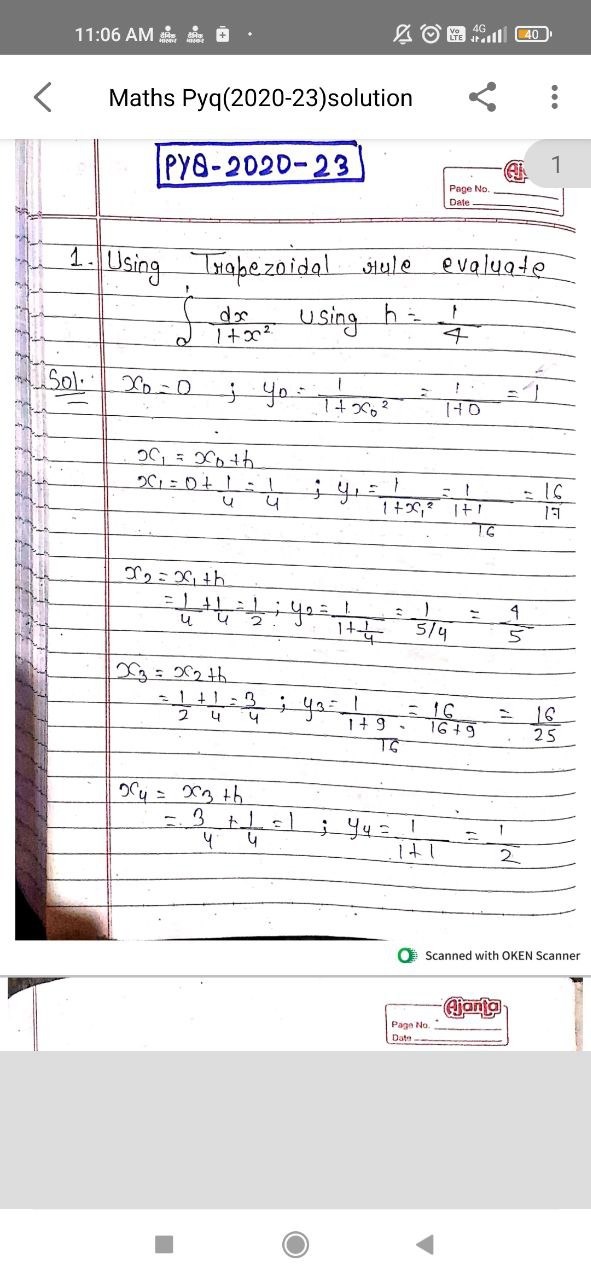 11:06 AM दैनिक भास्कर दैनिक भास्कर Vo LTE 4G 40
Maths Pyq(2020-23)solution
PYQ-2020-23
Aj 1
Page No.
Date
1. Using Trapezoidal rule evaluate
∫₀¹ dx/(1+x²) using h = 1/4
Sol. x₀ = 0 ; y₀ = 1/(1+x₀²) = 1/(1+0) = 1
x₁ = x₀+h
x₁ = 0+1/4 = 1/4 ; y₁ = 1/(1+x₁²) = 1/(1+1/16) = 16/17
x₂ = x₁+h
= 1/4+1/4 = 1/2 ; y₂ = 1/(1+1/4) = 1/(5/4) = 4/5
x₃ = x₂+h
= 1/2+1/4 = 3/4 ; y₃ = 1/(1+9/16) = 16/(16+9) = 16/25
x₄ = x₃+h
= 3/4+1/4 = 1 ; y₄ = 1/(1+1) = 1/2
Scanned with OKEN Scanner
Ajanta
Page No.
Date